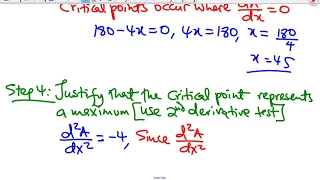 Critical points occur where dA/dx = 0
180-4x=0, 4x=180, x = 180/4
x=45
Step 4: Justify that the critical point represents
a maximum [use 2nd derivative test]
d²A/dx² = -4, Since d²A/dx²